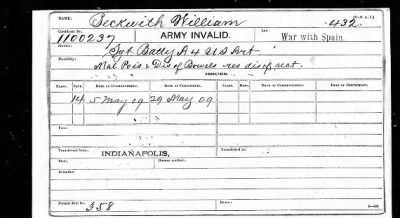 NAME: Beckwith William 432.
Certificate No. 1100237 ARMY INVALID. Law: War with Spain.
Service: Sgt. Batty A 4 U S Art
Disability: Mal Pois & Dis of Bowels res dis of rect.
CLASS. RATE. DATE OF COMMENCEMENT. DATE OF CERTIFICATE. CLASS. RATE. DATE OF COMMENCEMENT. DATE OF CERTIFICATE.
14 5 May 09 29 May 09
Transferred from INDIANAPOLIS, Transferred to
Died: Bureau notified:
Remarks:
Former Roll No. 358 Home: